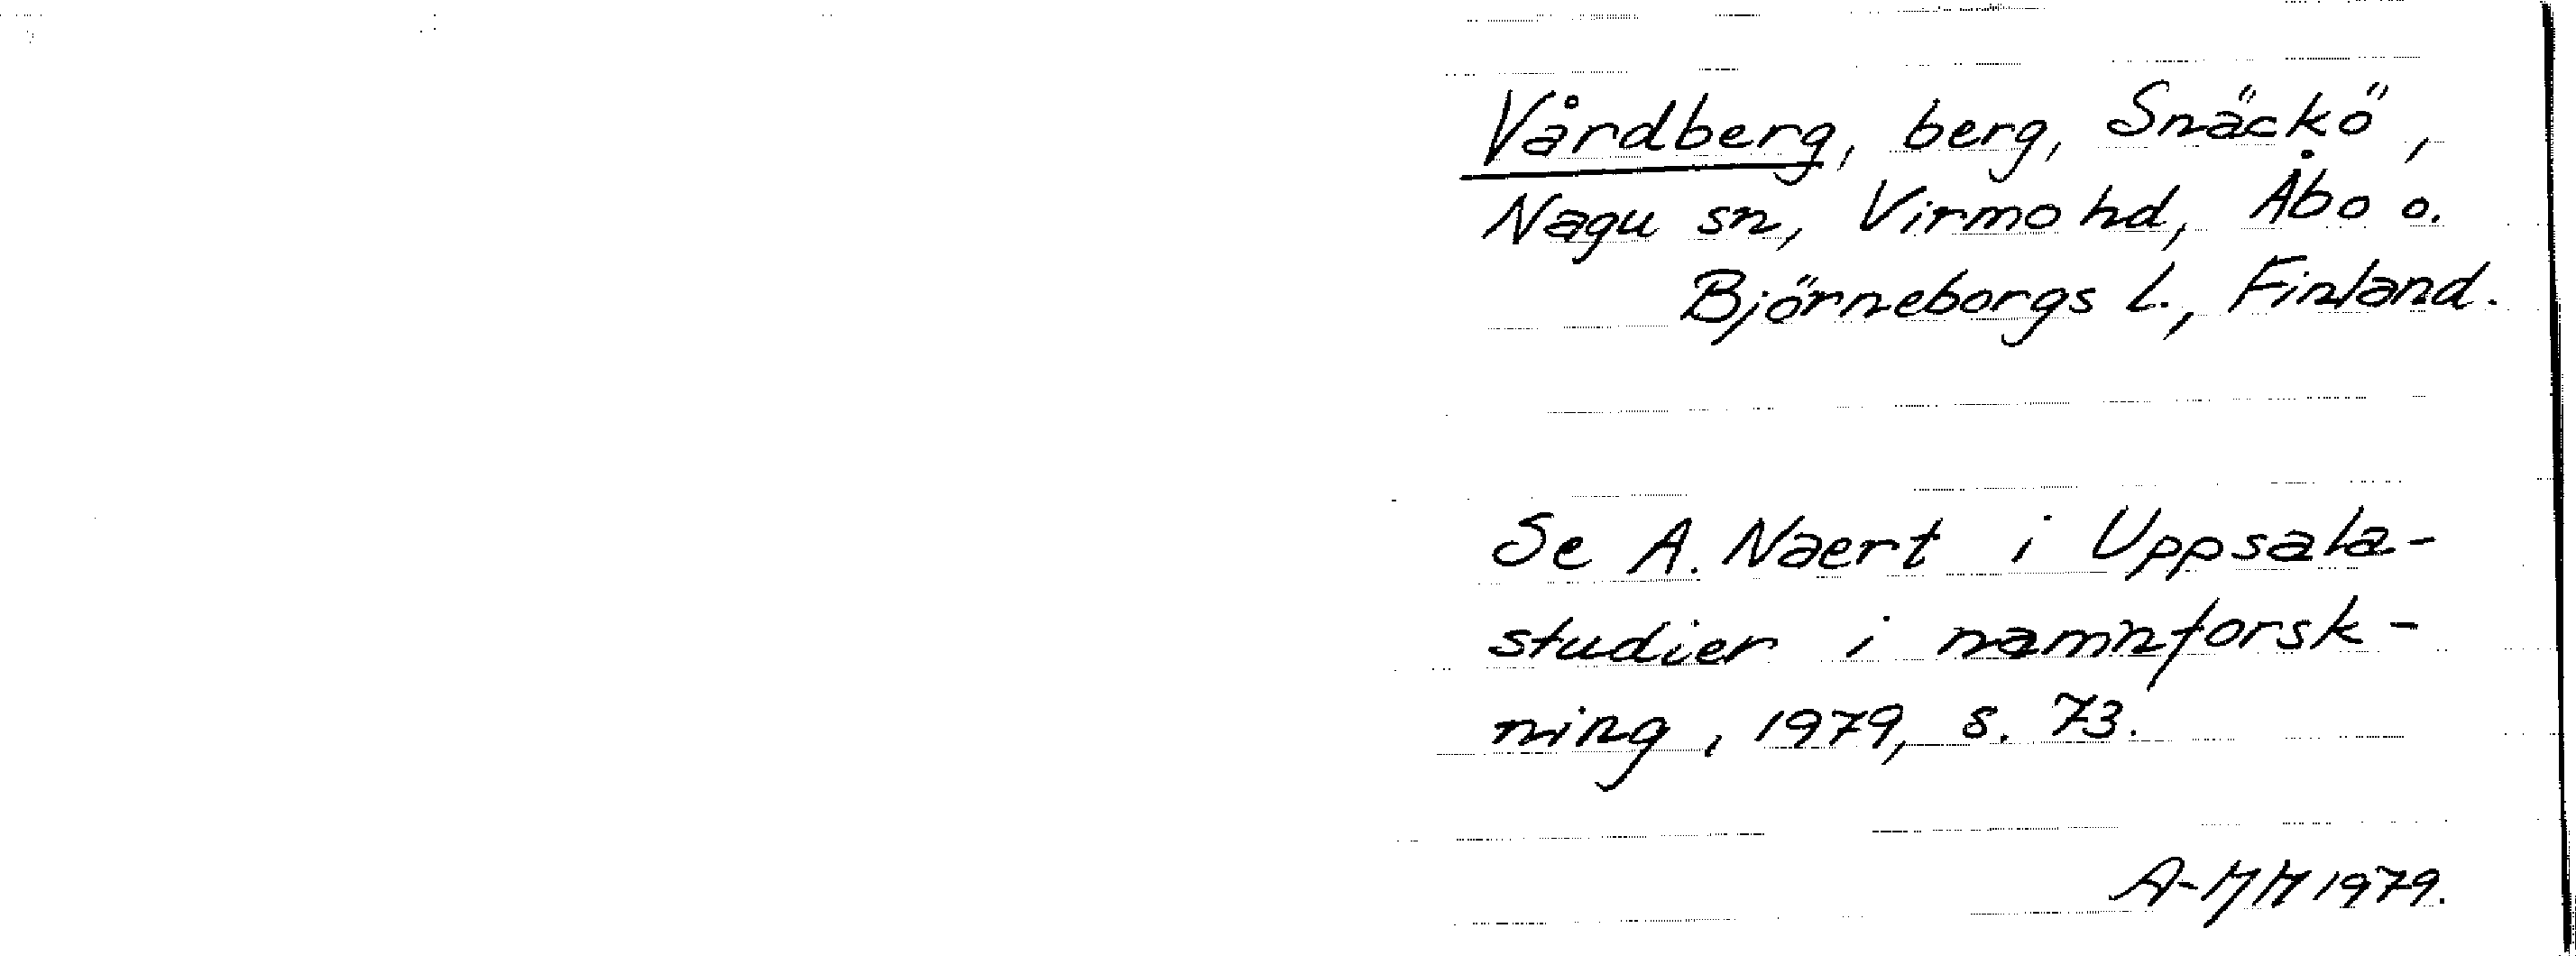 Vårdberg, berg, Snäckö,
Nagu sn, Virmo hd, Åbo o.
Björneborgs l., Finland.
Se A. Naert i Uppsala-
studier i namnforsk-
ning, 1979, s. 73.
1979.